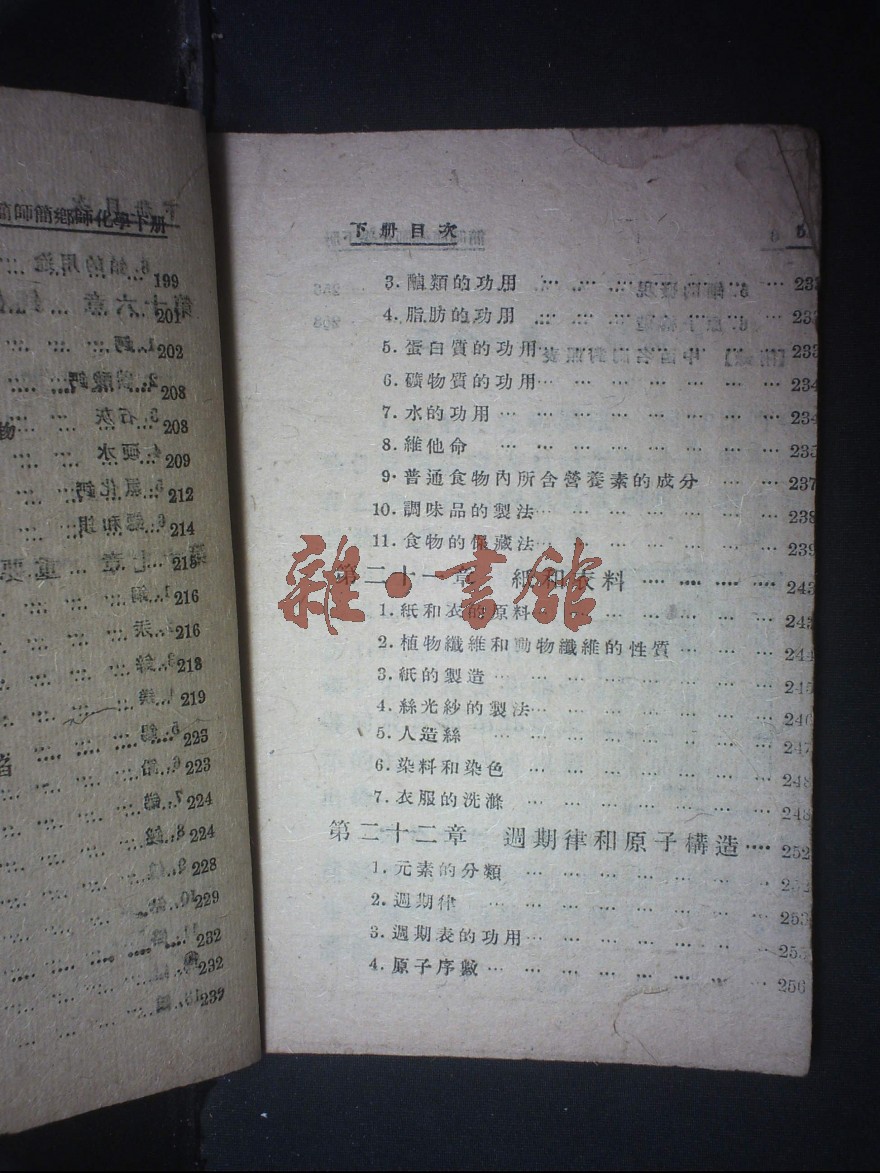 簡師簡鄉師化學下册
199
201
202
208
208
209
212
214
215
216
216
218
219
223
223
224
224
228
229
232
232
237
下册目次
3. 醣類的功用 … 233
4. 脂肪的功用 … 233
5. 蛋白質的功用 … 233
6. 礦物質的功用 … 234
7. 水的功用 … 234
8. 維他命 … 235
9. 普通食物內所含營養素的成分 … 237
10. 調味品的製法 … 238
11. 食物的保藏法 … 239
第二十一章 紙和衣料 … 243
1. 紙和衣的原料 … 243
2. 植物纖維和動物纖維的性質 … 244
3. 紙的製造 … 245
4. 絲光紗的製法 … 246
5. 人造絲 … 247
6. 染料和染色 … 248
7. 衣服的洗滌 … 248
第二十二章 週期律和原子構造 … 252
1. 元素的分類 … 252
2. 週期律 … 253
3. 週期表的功用 … 255
4. 原子序數 … 256
雜·書館